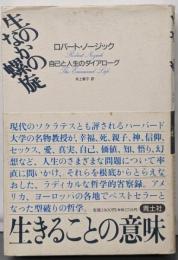 生のなかの螺旋
ロバート・ノージック
Robert Nozick
自己と人生のダイアローグ
The Examined Life
井上章子 訳
現代のソクラテスとも評されるハーバード
大学の名物教授が、幸福、死、親子、神、信仰、
セックス、愛、真実、自己、価値、知、悟り、幻
想など、人生のさまざまな問題について
率直に問いかけ、それらを根底からとらえな
おした、ラディカルな哲学的省察録。アメ
リカ、ヨーロッパの各地でベストセラーと
なった型破りの哲学。
青土社
生きることの意味